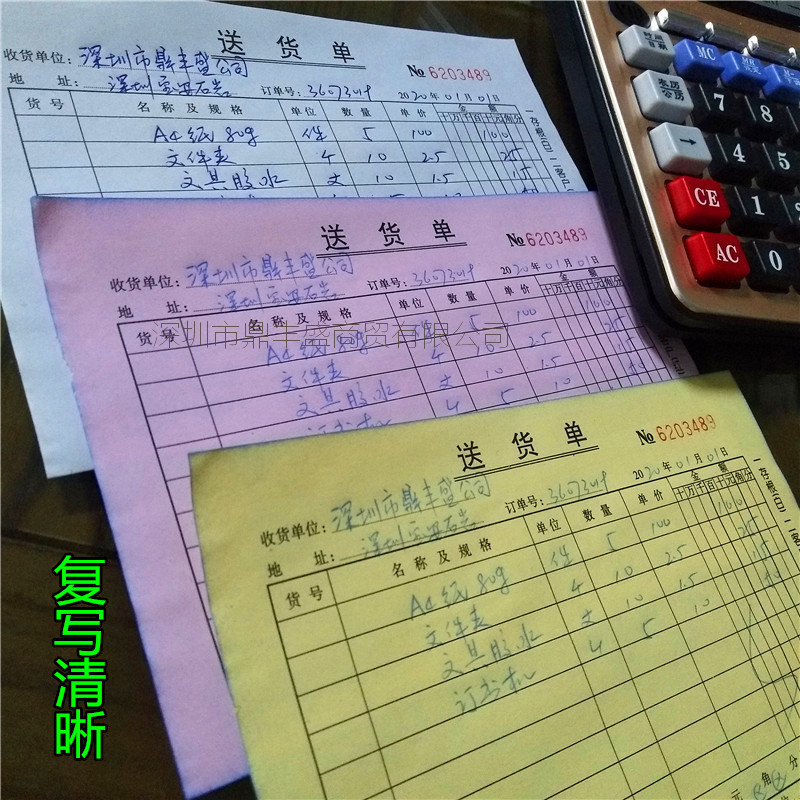 送 货 单
收货单位: 深圳市鼎丰盛公司 № 6203489
地 址: 深圳宝安石岩 订单号: 3607301 2020年01月01日
货 号 名 称 及 规 格 单位 数 量 单 价 金 额
十万千百十元角分
A4纸 80g 件 5 100 100
文件夹 4 10 2.5 25
文具胶水 支 10 1.5 15
送 货 单
№ 6203489
收货单位: 深圳市鼎丰盛公司
地 址: 深圳宝安石岩 订单号: 3607301 2020年01月01日
货 号 名 称 及 规 格 单位 数 量 单 价 金 额
十万千百十元角分
深圳市鼎丰盛商贸有限公司
A4纸 80g 件 5 100 100
文件夹 4 10 2.5 25
文具胶水 支 10 1.5 15
订书机 4 5 10
送 货 单
№ 6203489
收货单位: 深圳市鼎丰盛公司
地 址: 深圳宝安石岩 订单号: 3607301 2020年01月01日
货 号 名 称 及 规 格 单位 数 量 单 价 金 额
十万千百十元角分
一存根(白) 二
A4纸 80g 件 5 100 100
文件夹 4 10 2.5 25
文具胶水 支 10 1.5 15
订书机 4 5 10
元 角 分
复写清晰
时间日期 MC
农历公历 7 8
→ 4 5
CE 1
AC 0